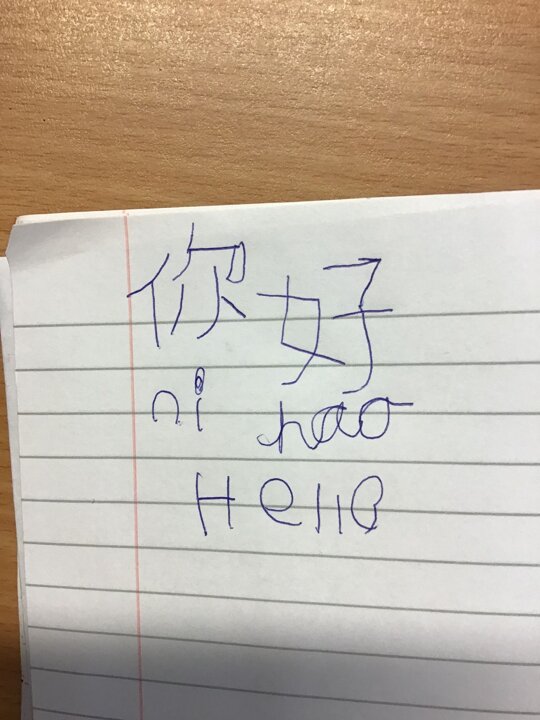 你好
ni hao
Hello